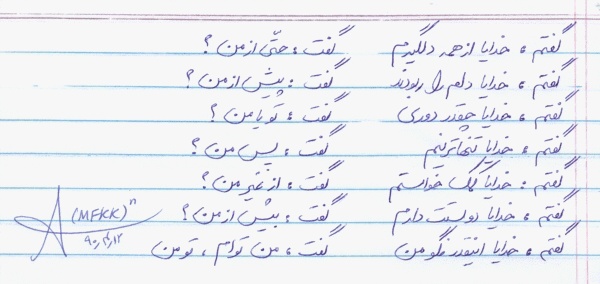 گفتم : خدایا از همه دلگیرم گفت : حتّی از من ؟
گفتم : خدایا دلم را ربودند گفت : پیش از من ؟
گفتم : خدایا چقدر دوری گفت : تو یا من ؟
گفتم : خدایا تنهاترینم گفت : پس من ؟
گفتم : خدایا کمک خواستم گفت : از غیر من ؟
گفتم : خدایا دوستت دارم گفت : بیش از من ؟
گفتم : خدایا انیقدر نگو من گفت : من توام ، تو من
(MFKK)ⁿ